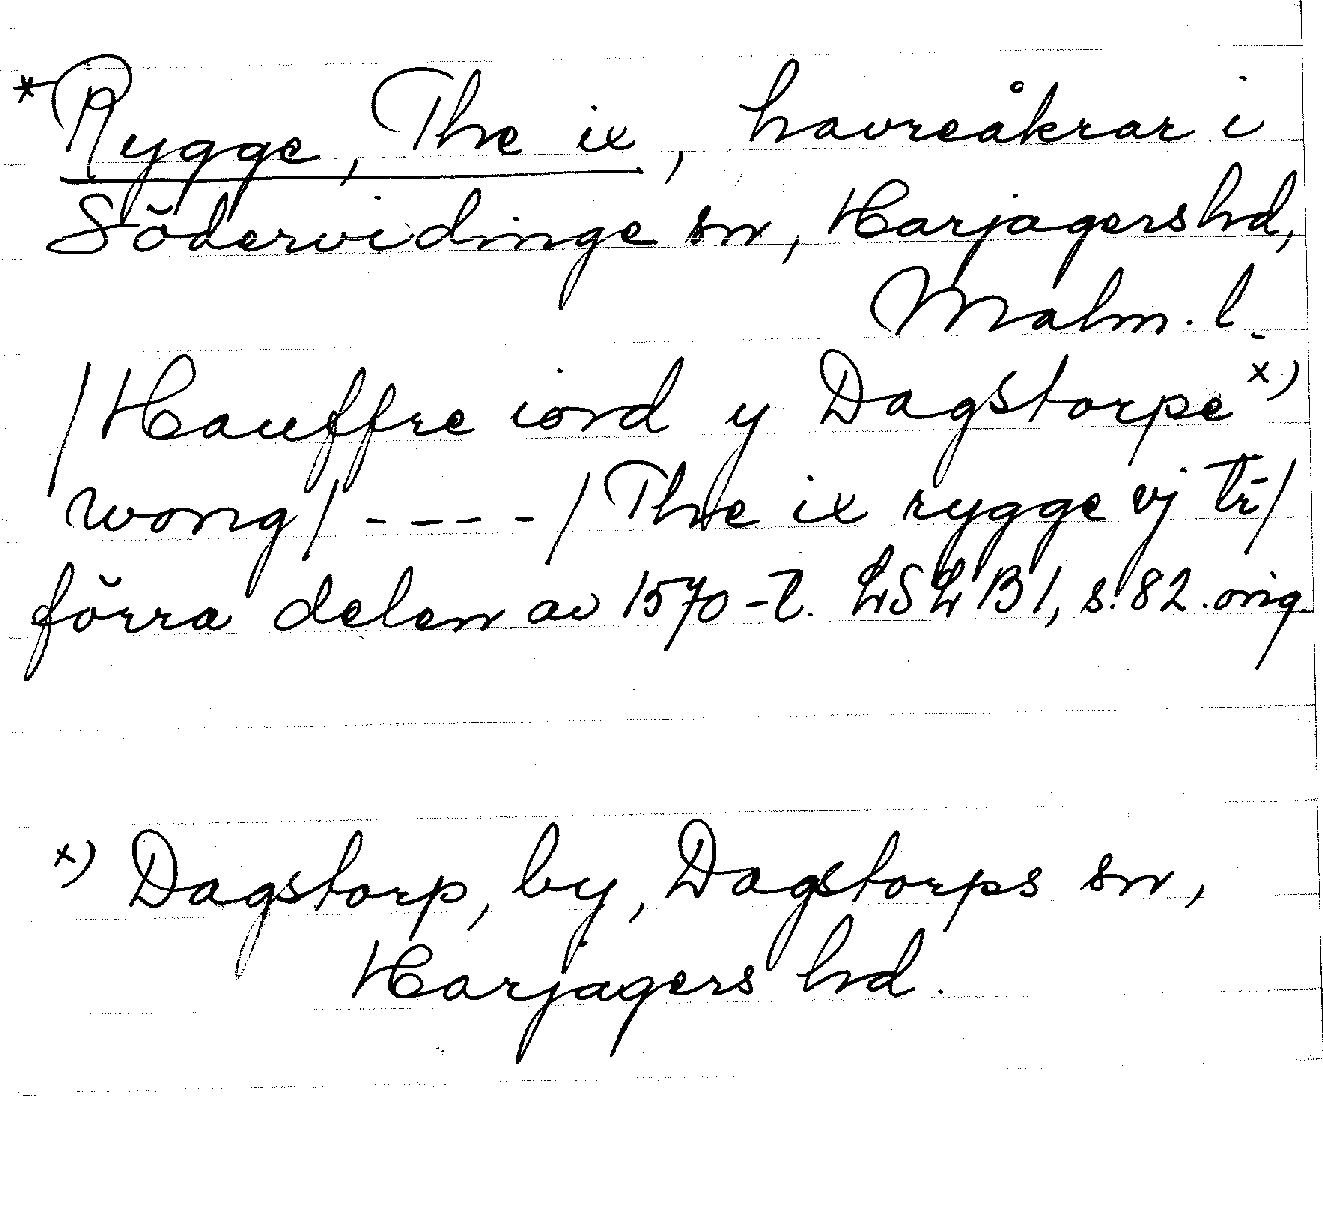 * Rygge, The ix, havreåkrar i
Södervidinge sn, Harjagers hd,
Malm. l.
/Hauffre iord y Dagstorpe x)
wong/ - - - - /The ix rygge vj tr̄/
förra delen av 1570-t. LSLB1, s. 82. orig
x) Dagstorp, by, Dagstorps sn,
Harjagers hd.